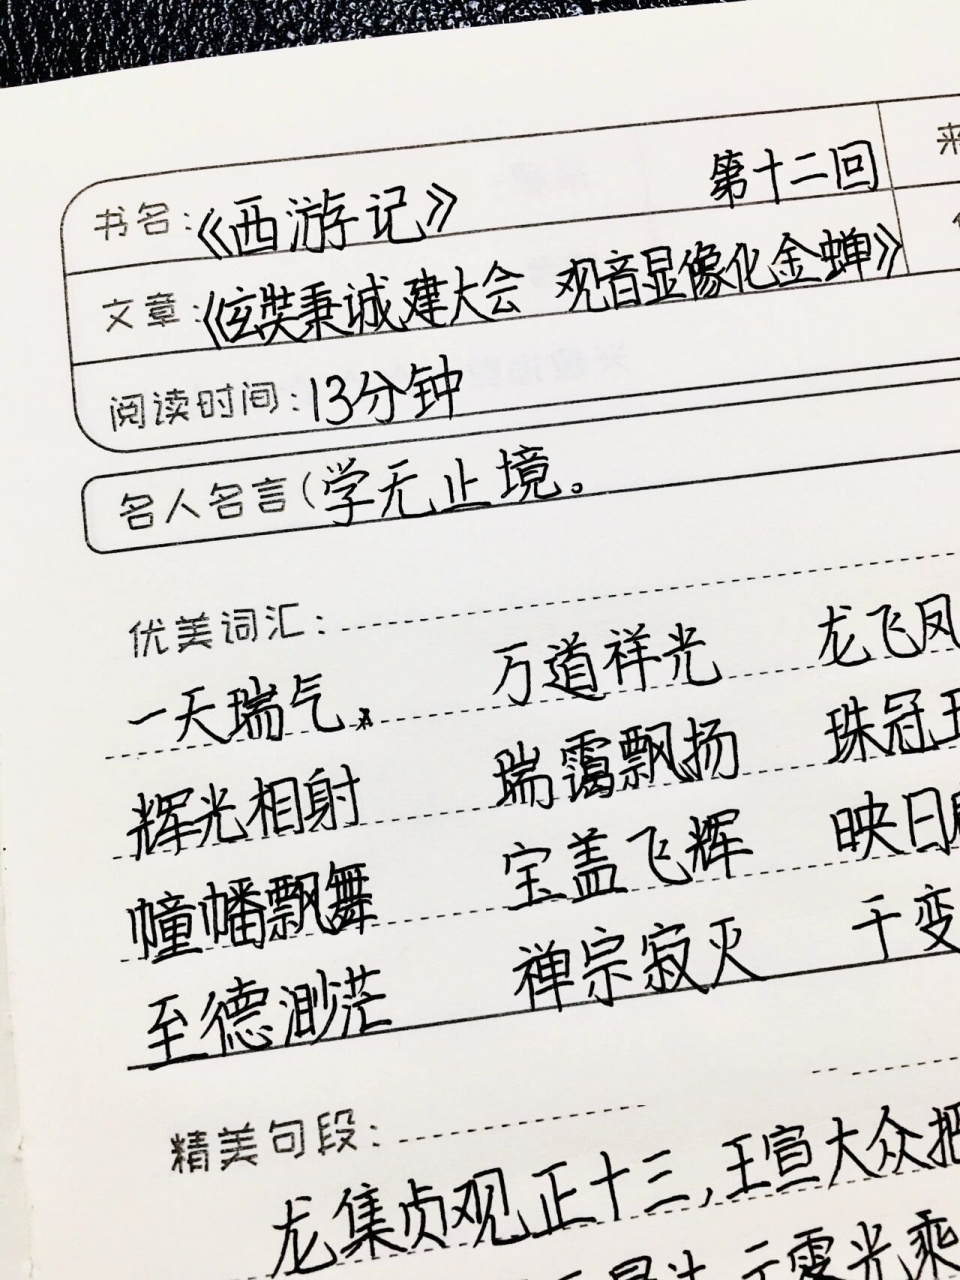 书名:《西游记》 第十二回
文章:《玄奘秉诚建大会 观音显像化金蝉》
阅读时间:13分钟
名人名言(学无止境。
优美词汇:
一天瑞气 万道祥光 龙飞凤
辉光相射 瑞霭飘扬 珠冠玉
幢幡飘舞 宝盖飞辉 映日
至德渺茫 禅宗寂灭 千变
精美句段:
龙集贞观正十三,王宣大众把
云霞光乘